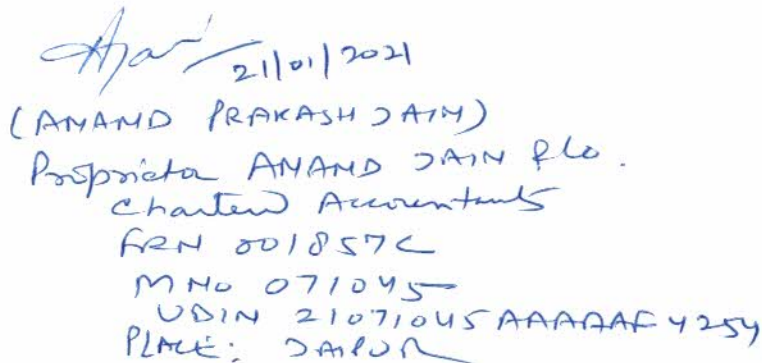 21/01/2021
(ANAND PRAKASH JAIN)
Proprietor ANAND JAIN & Co.
Chartered Accountants
FRN 001857C
M No 071045
UDIN 21071045AAAAAF4254
PLACE: JAIPUR